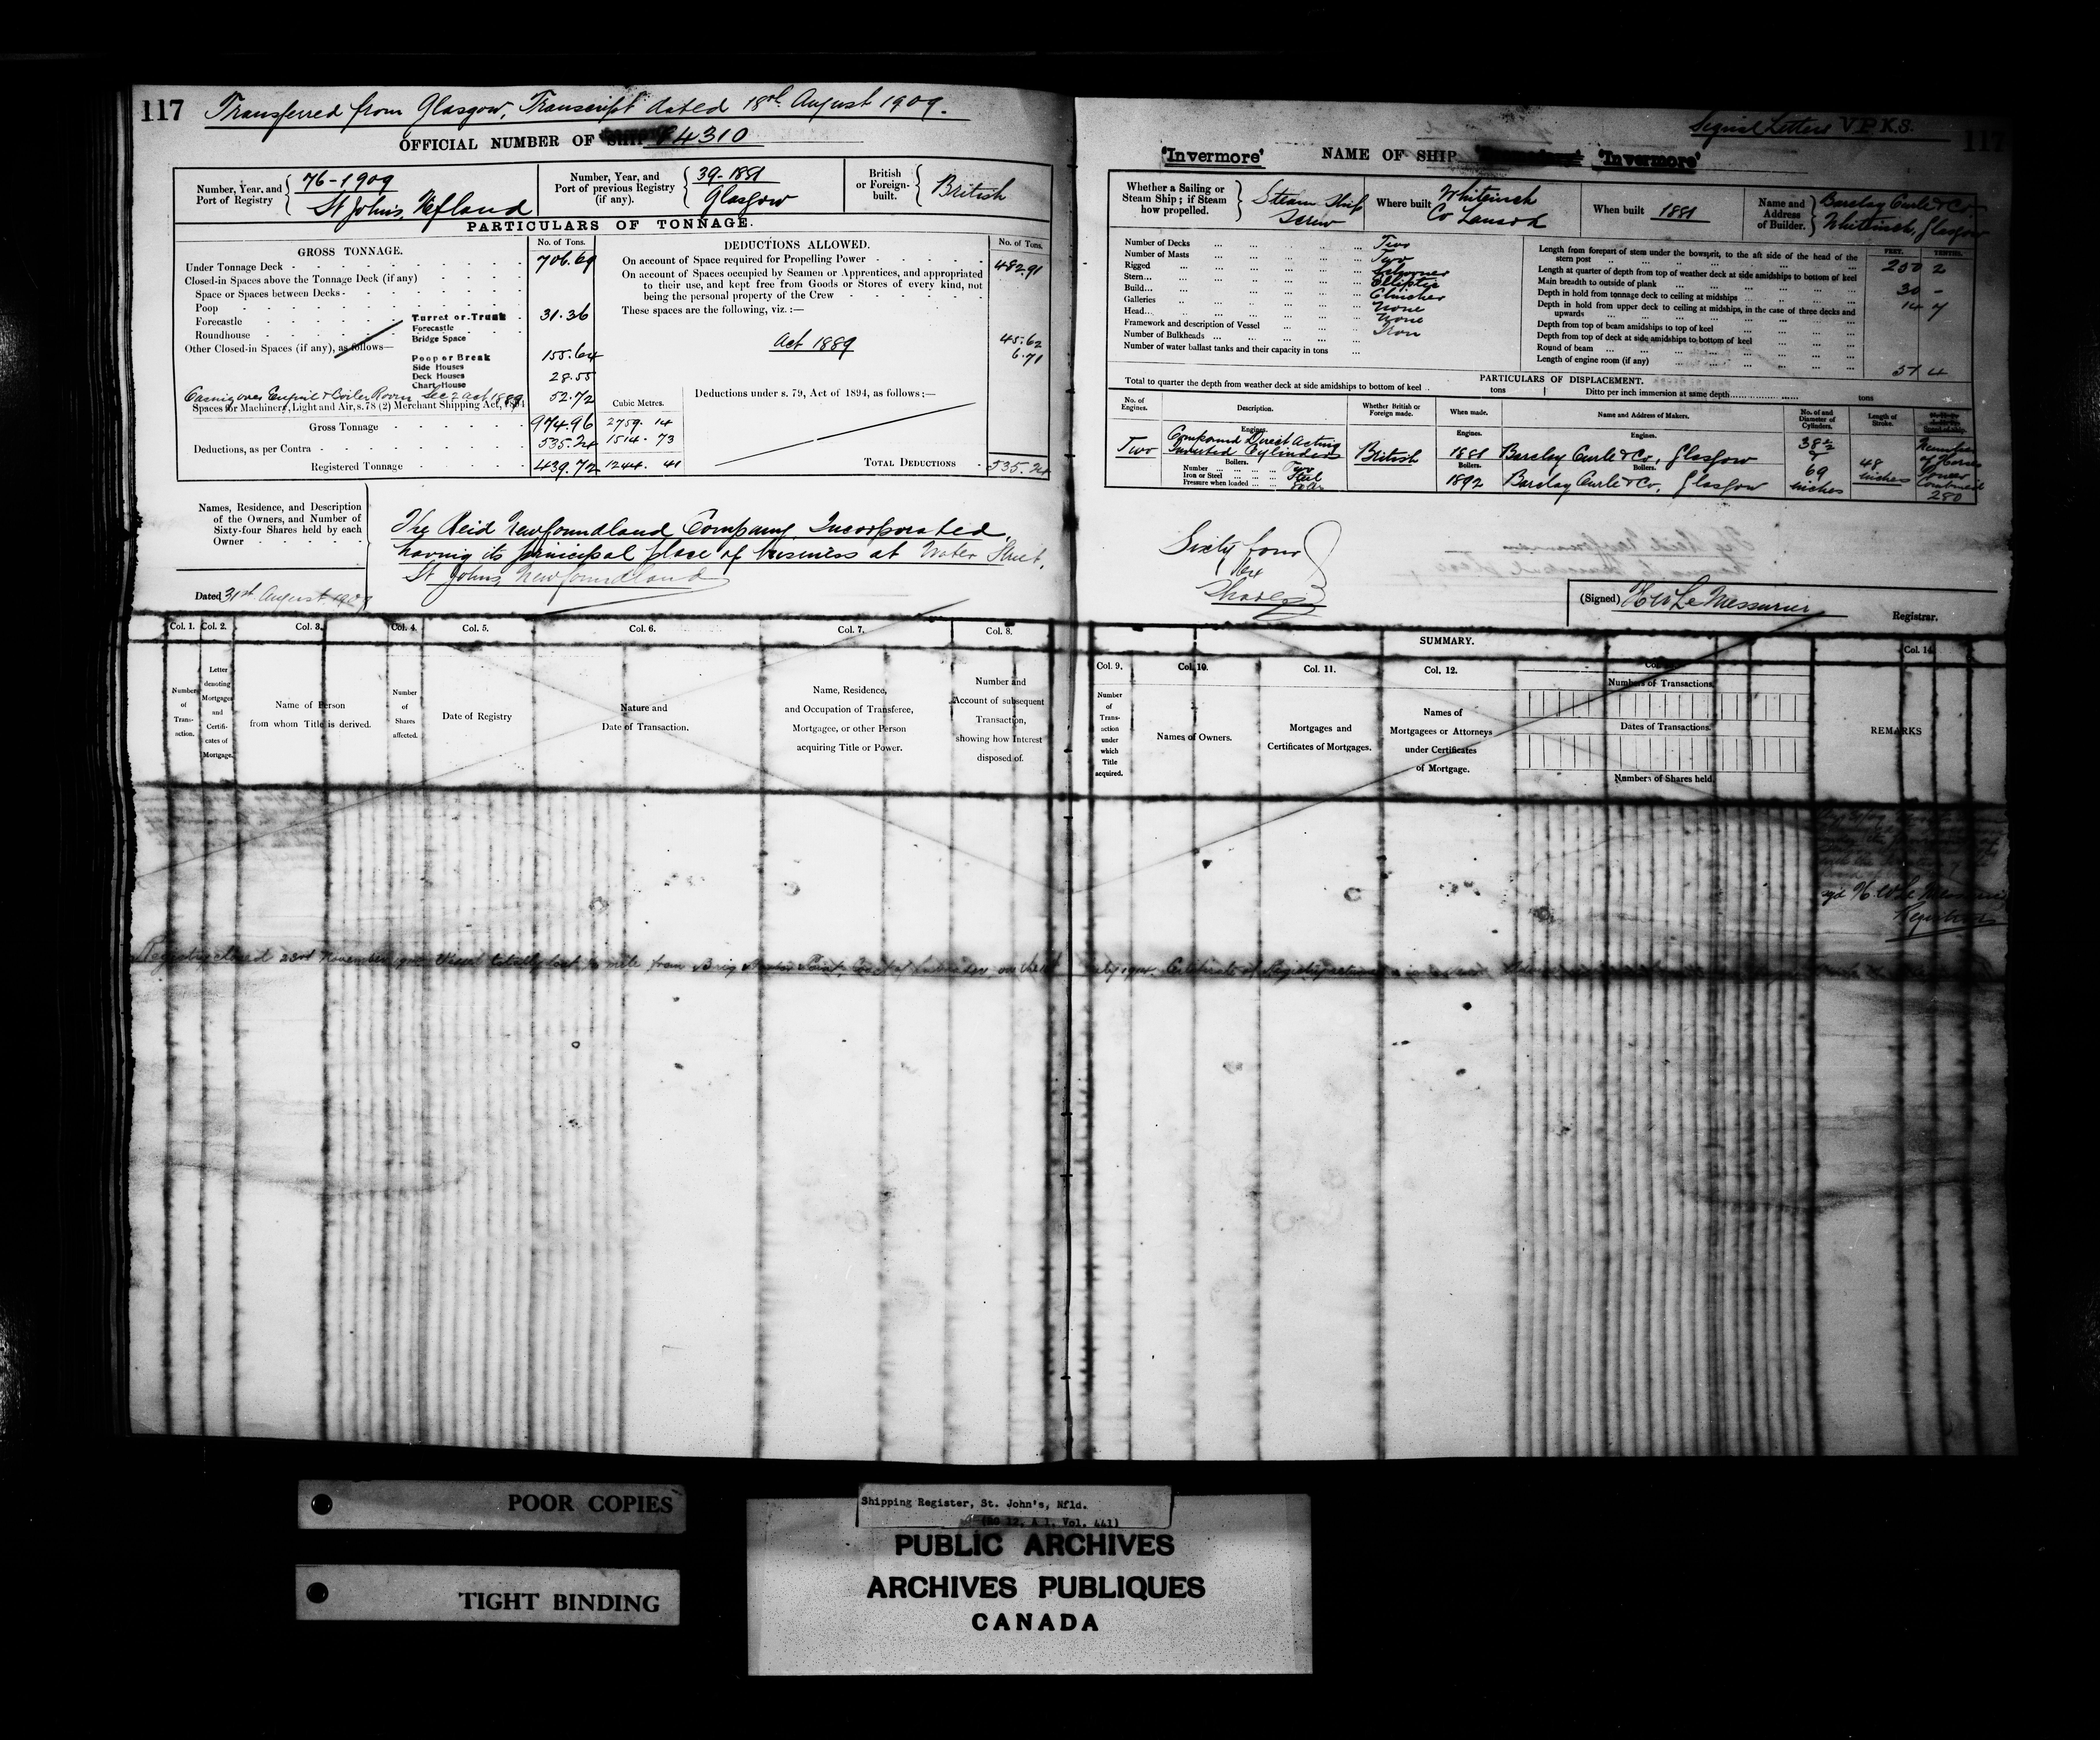 117 Transferred from Glasgow, Transcript dated 18th August 1909.
OFFICIAL NUMBER OF SHIP 84310
Number, Year, and Port of Registry
76-1909
St John's, Nfland
Number, Year, and Port of previous Registry (if any).
39-1881
Glasgow
British or Foreign-built.
British
PARTICULARS OF TONNAGE.
GROSS TONNAGE.
No. of Tons.
Under Tonnage Deck 706.69
Closed-in Spaces above the Tonnage Deck (if any)
Space or Spaces between Decks
Poop
Forecastle
Roundhouse
Other Closed-in Spaces (if any), as follows—
Turret or Trunk 31.36
Forecastle
Bridge Space
Poop or Break 155.64
Side Houses
Deck Houses 28.55
Chart House
Casing over Engine & Boiler Room Sec 2 act 1889 52.72
Spaces for Machinery, Light and Air, s. 78 (2) Merchant Shipping Act, 1894
Cubic Metres.
Gross Tonnage 974.96 2759.14
Deductions, as per Contra 535.24 1514.73
Registered Tonnage 439.72 1244.41
DEDUCTIONS ALLOWED.
No. of Tons.
On account of Space required for Propelling Power 482.91
On account of Spaces occupied by Seamen or Apprentices, and appropriated
to their use, and kept free from Goods or Stores of every kind, not
being the personal property of the Crew
These spaces are the following, viz. :—
Act 1889 45.62
6.71
Deductions under s. 79, Act of 1894, as follows :—
TOTAL DEDUCTIONS 535.24
Names, Residence, and Description
of the Owners, and Number of
Sixty-four Shares held by each
Owner
The Reid Newfoundland Company, Incorporated,
having its principal place of business at Water Street,
St Johns, Newfoundland
Dated 31st August 1909
Col. 1. Col. 2. Col. 3. Col. 4. Col. 5. Col. 6. Col. 7. Col. 8.
Number of Transaction.
Letter denoting Mortgages and Certificates of Mortgage.
Name of Person from whom Title is derived.
Number of Shares affected.
Date of Registry
Nature and Date of Transaction.
Name, Residence, and Occupation of Transferee, Mortgagee, or other Person acquiring Title or Power.
Number and Account of subsequent Transaction, showing how Interest disposed of.
Signal Letters V.P.K.S.
117
'Invermore' NAME OF SHIP 'Invermore'
Whether a Sailing or Steam Ship ; if Steam how propelled.
Steam Ship
Screw
Where built
Whiteinch
Co Lanark
When built 1881
Name and Address of Builder.
Barclay Curle & Co.
Whiteinch, Glasgow
Number of Decks Two
Number of Masts Two
Rigged Schooner
Stern Elliptic
Build Clincher
Galleries None
Head None
Framework and description of Vessel Iron
Number of Bulkheads
Number of water ballast tanks and their capacity in tons
FEET. TENTHS.
Length from forepart of stem under the bowsprit, to the aft side of the head of the
stern post 250 2
Length at quarter of depth from top of weather deck at side amidships to bottom of keel
Main breadth to outside of plank 30 -
Depth in hold from tonnage deck to ceiling at midships 14 7
Depth in hold from upper deck to ceiling at midships, in the case of three decks and
upwards
Depth from top of beam amidships to top of keel
Depth from top of deck at side amidships to bottom of keel
Round of beam
Length of engine room (if any) 51 4
PARTICULARS OF DISPLACEMENT.
Total to quarter the depth from weather deck at side amidships to bottom of keel tons
Ditto per inch immersion at same depth tons
No. of Engines.
Description.
Whether British or Foreign made.
When made.
Name and Address of Makers.
No. of and Diameter of Cylinders.
Length of Stroke.
Two
Engines.
Compound Direct Acting
Inverted Cylinders
British
Engines.
1881
Engines.
Barclay Curle & Co, Glasgow
38½
&
69
inches
48
inches
Number
of Horse
Power
Combined
280
Boilers.
Number Two
Iron or Steel Steel
Pressure when loaded
Boilers.
1892
Boilers.
Barclay Curle & Co, Glasgow
Sixty four
64
Shares
(Signed) H W LeMessurier
Registrar.
SUMMARY.
Col. 9. Col. 10. Col. 11. Col. 12. Col. 14.
Number of Transaction under which Title acquired.
Names of Owners.
Mortgages and Certificates of Mortgages.
Names of Mortgagees or Attorneys under Certificates of Mortgage.
Numbers of Transactions.
Dates of Transactions.
Numbers of Shares held.
REMARKS
sgd H. W. Le Messurier
Registrar
Registry closed 23rd November Vessel totally lost mile from Brig Point, Coast of Labrador, on the July 1914. Certificate of Registry
POOR COPIES
TIGHT BINDING
Shipping Register, St. John's, Nfld.
(RG 12, A 1, Vol. 441)
PUBLIC ARCHIVES
ARCHIVES PUBLIQUES
CANADA